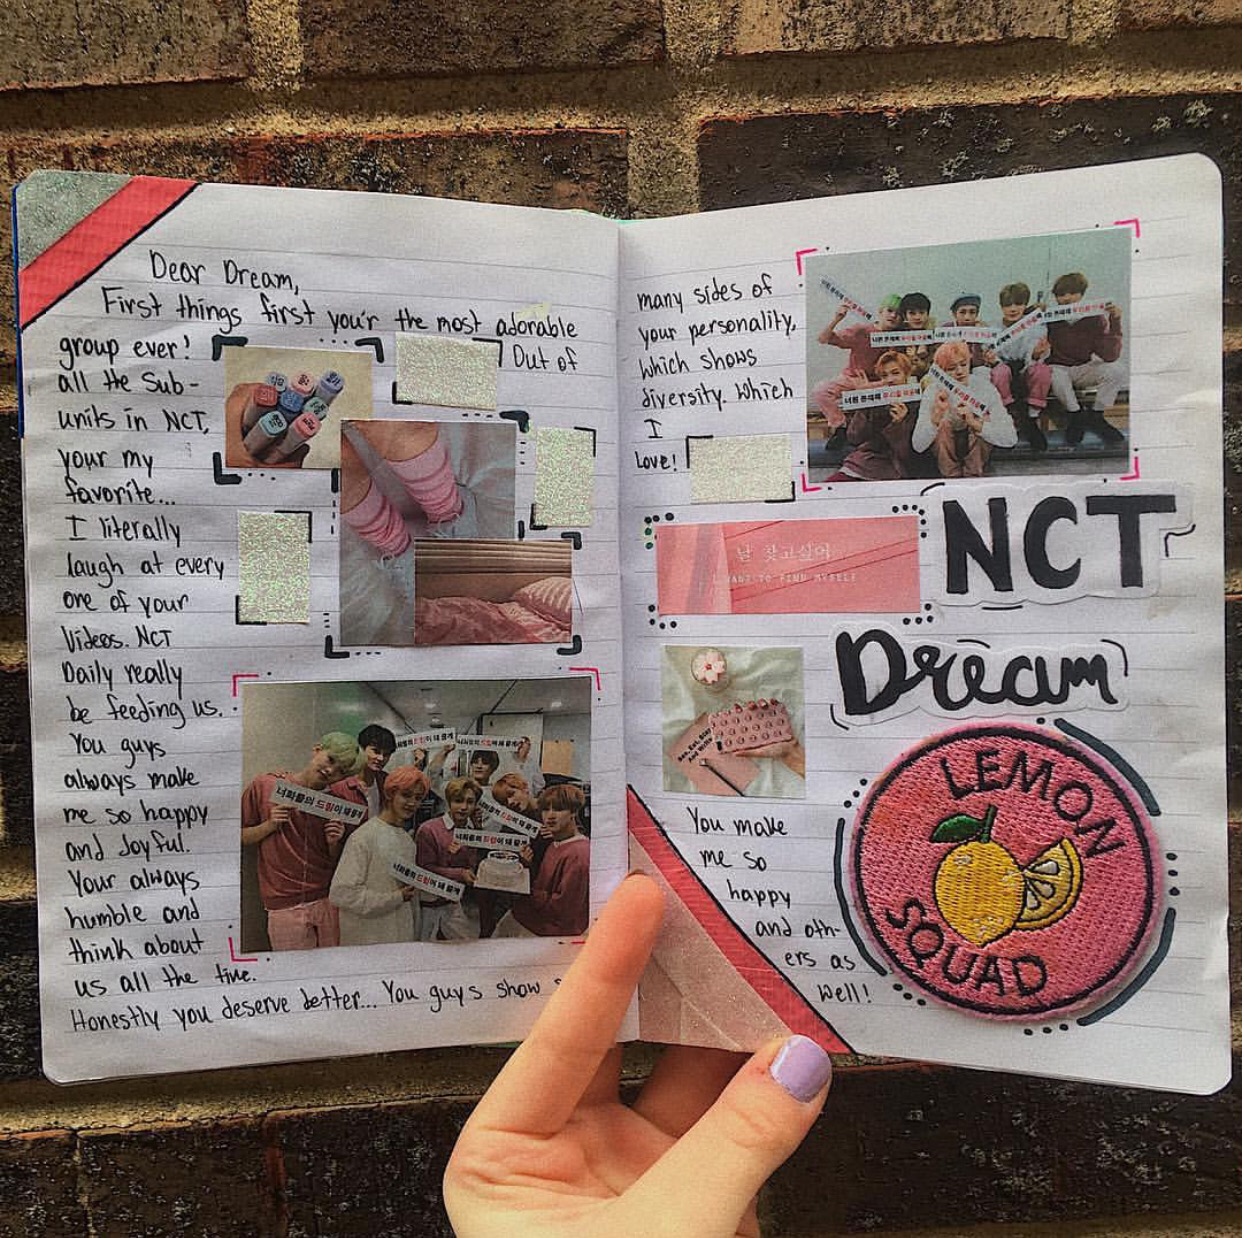 Dear Dream,
First things first you'r the most adorable
group ever! Out of
all the Sub-
units in NCT,
your my
favorite...
I literally
laugh at every
one of your
Videos. NCT
Daily really
be feeding us.
You guys
always make
me so happy
and Joyful.
Your always
humble and
think about
us all the time.
Honestly you deserve better... You guys show
너희들의 드림이 돼 줄게
너희들의 드림이 돼 줄게
너희들의 드림이 돼 줄게
너희들의 드림이 돼 줄게
many sides of
your personality,
which shows
diversity. Which
I
Love!
날 찾고싶어
I WANT TO FIND MYSELF
NCT
Dream
You make
me so
happy
and oth-
ers as
well!
LEMON
SQUAD